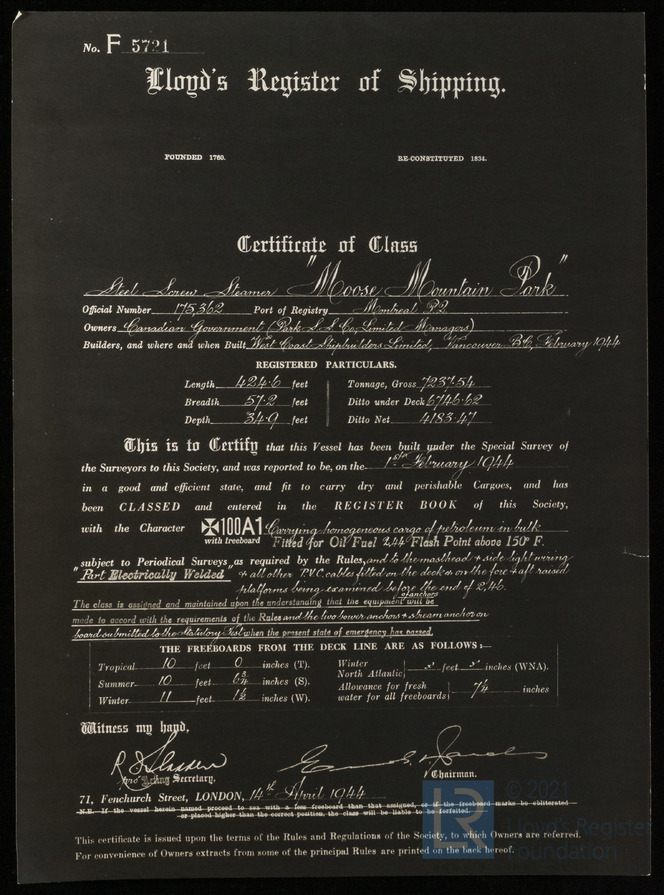 No. F 5721
Lloyd's Register of Shipping.
FOUNDED 1760. RE-CONSTITUTED 1834.
Certificate of Class
Steel Screw Steamer "Moose Mountain Park"
Official Number 175,362 Port of Registry Montreal P.Q.
Owners Canadian Government (Park S.S. Co. Limited Managers)
Builders, and where and when Built West Coast Shipbuilders Limited, Vancouver B.C. February 1944
REGISTERED PARTICULARS.
Length 424.6 feet Tonnage, Gross 7237.54
Breadth 57.2 feet Ditto under Deck 6746.62
Depth 34.9 feet Ditto Net 4183.47
This is to Certify that this Vessel has been built under the Special Survey of
the Surveyors to this Society, and was reported to be, on the 1st February 1944
in a good and efficient state, and fit to carry dry and perishable Cargoes, and has
been CLASSED and entered in the REGISTER BOOK of this Society,
with the Character ✠100A1 Carrying homogeneous cargo of petroleum in bulk
with freeboard Fitted for Oil Fuel 2,44 Flash Point above 150° F.
subject to Periodical Surveys as required by the Rules, and to the masthead & side light wiring
"Part Electrically Welded" & all other P.V.C. cables fitted on the deck & on the fore & aft raised
platforms being examined before the end of 2,46.
The class is assigned and maintained upon the understanding that the equipment of anchors will be
made to accord with the requirements of the Rules and the two bower anchors & stream anchor on
board submitted to the Statutory Test when the present state of emergency has passed.
THE FREEBOARDS FROM THE DECK LINE ARE AS FOLLOWS:—
Tropical 10 feet 0 inches (T). Winter North Atlantic feet inches (WNA).
Summer 10 feet 6¾ inches (S). Allowance for fresh water for all freeboards 7¼ inches
Winter 11 feet 1½ inches (W).
Witness my hand,
pro Acting Secretary. Chairman.
71, Fenchurch Street, LONDON, 14th April 1944
N.B. If the vessel herein named proceed to sea with a less freeboard than that assigned, or if the freeboard marks be obliterated
or placed higher than the correct position, the class will be liable to be forfeited.
This certificate is issued upon the terms of the Rules and Regulations of the Society, to which Owners are referred.
For convenience of Owners extracts from some of the principal Rules are printed on the back hereof.
© 2021
LR Lloyd's Register
Foundation